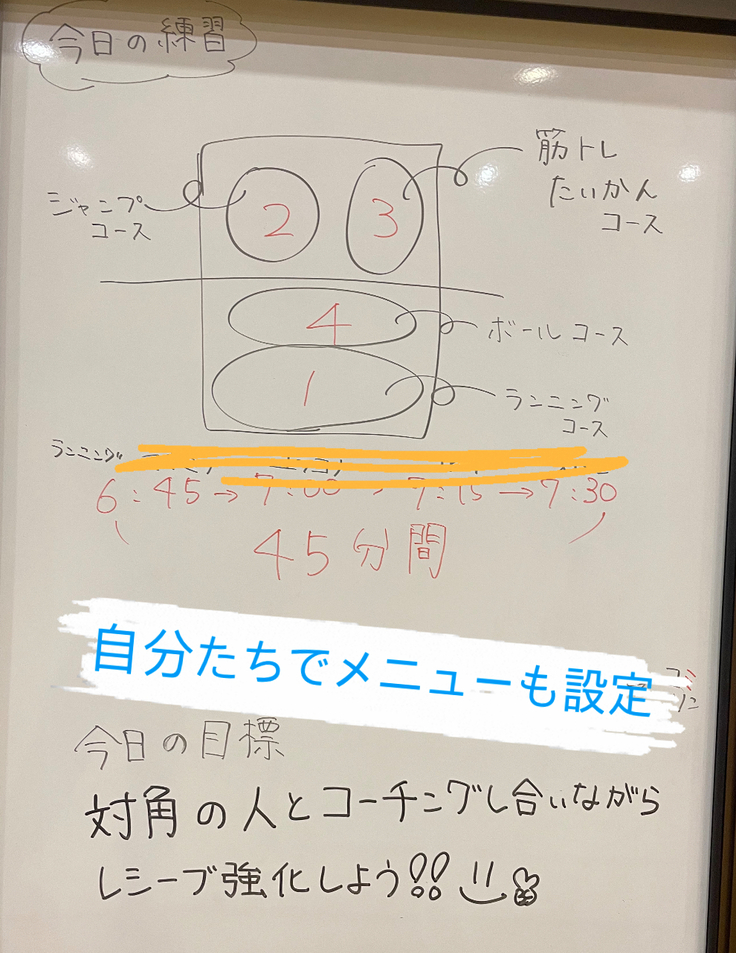 今日の練習
筋トレ
たいかん
コース
ジャンプ
コース
2
3
4
ボールコース
1
ランニング
コース
ランニング
6:45→7:00 7:15→7:30
45分間
自分たちでメニューも設定
今日の目標
対角の人とコーチングし合いながら
レシーブ強化しよう!!